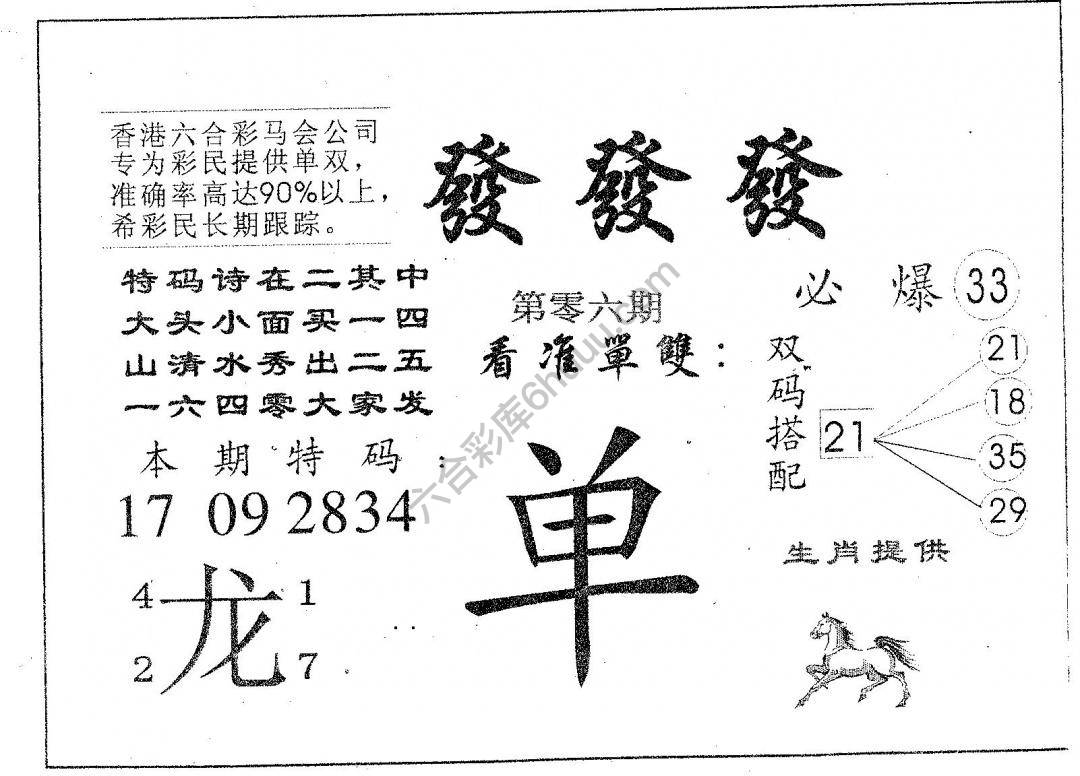 香港六合彩马会公司
专为彩民提供单双，
准确率高达90%以上，
希彩民长期跟踪。
發 發 發
特码诗在二其中
大头小面买一四
山清水秀出二五
一六四零大家发
本期特码：
17 09 28 34
4 龙 1
2 7
第零六期
看准單雙：
单
必爆 33
双码搭配
21
21
18
35
29
生肖提供
六合彩库6huuu.com